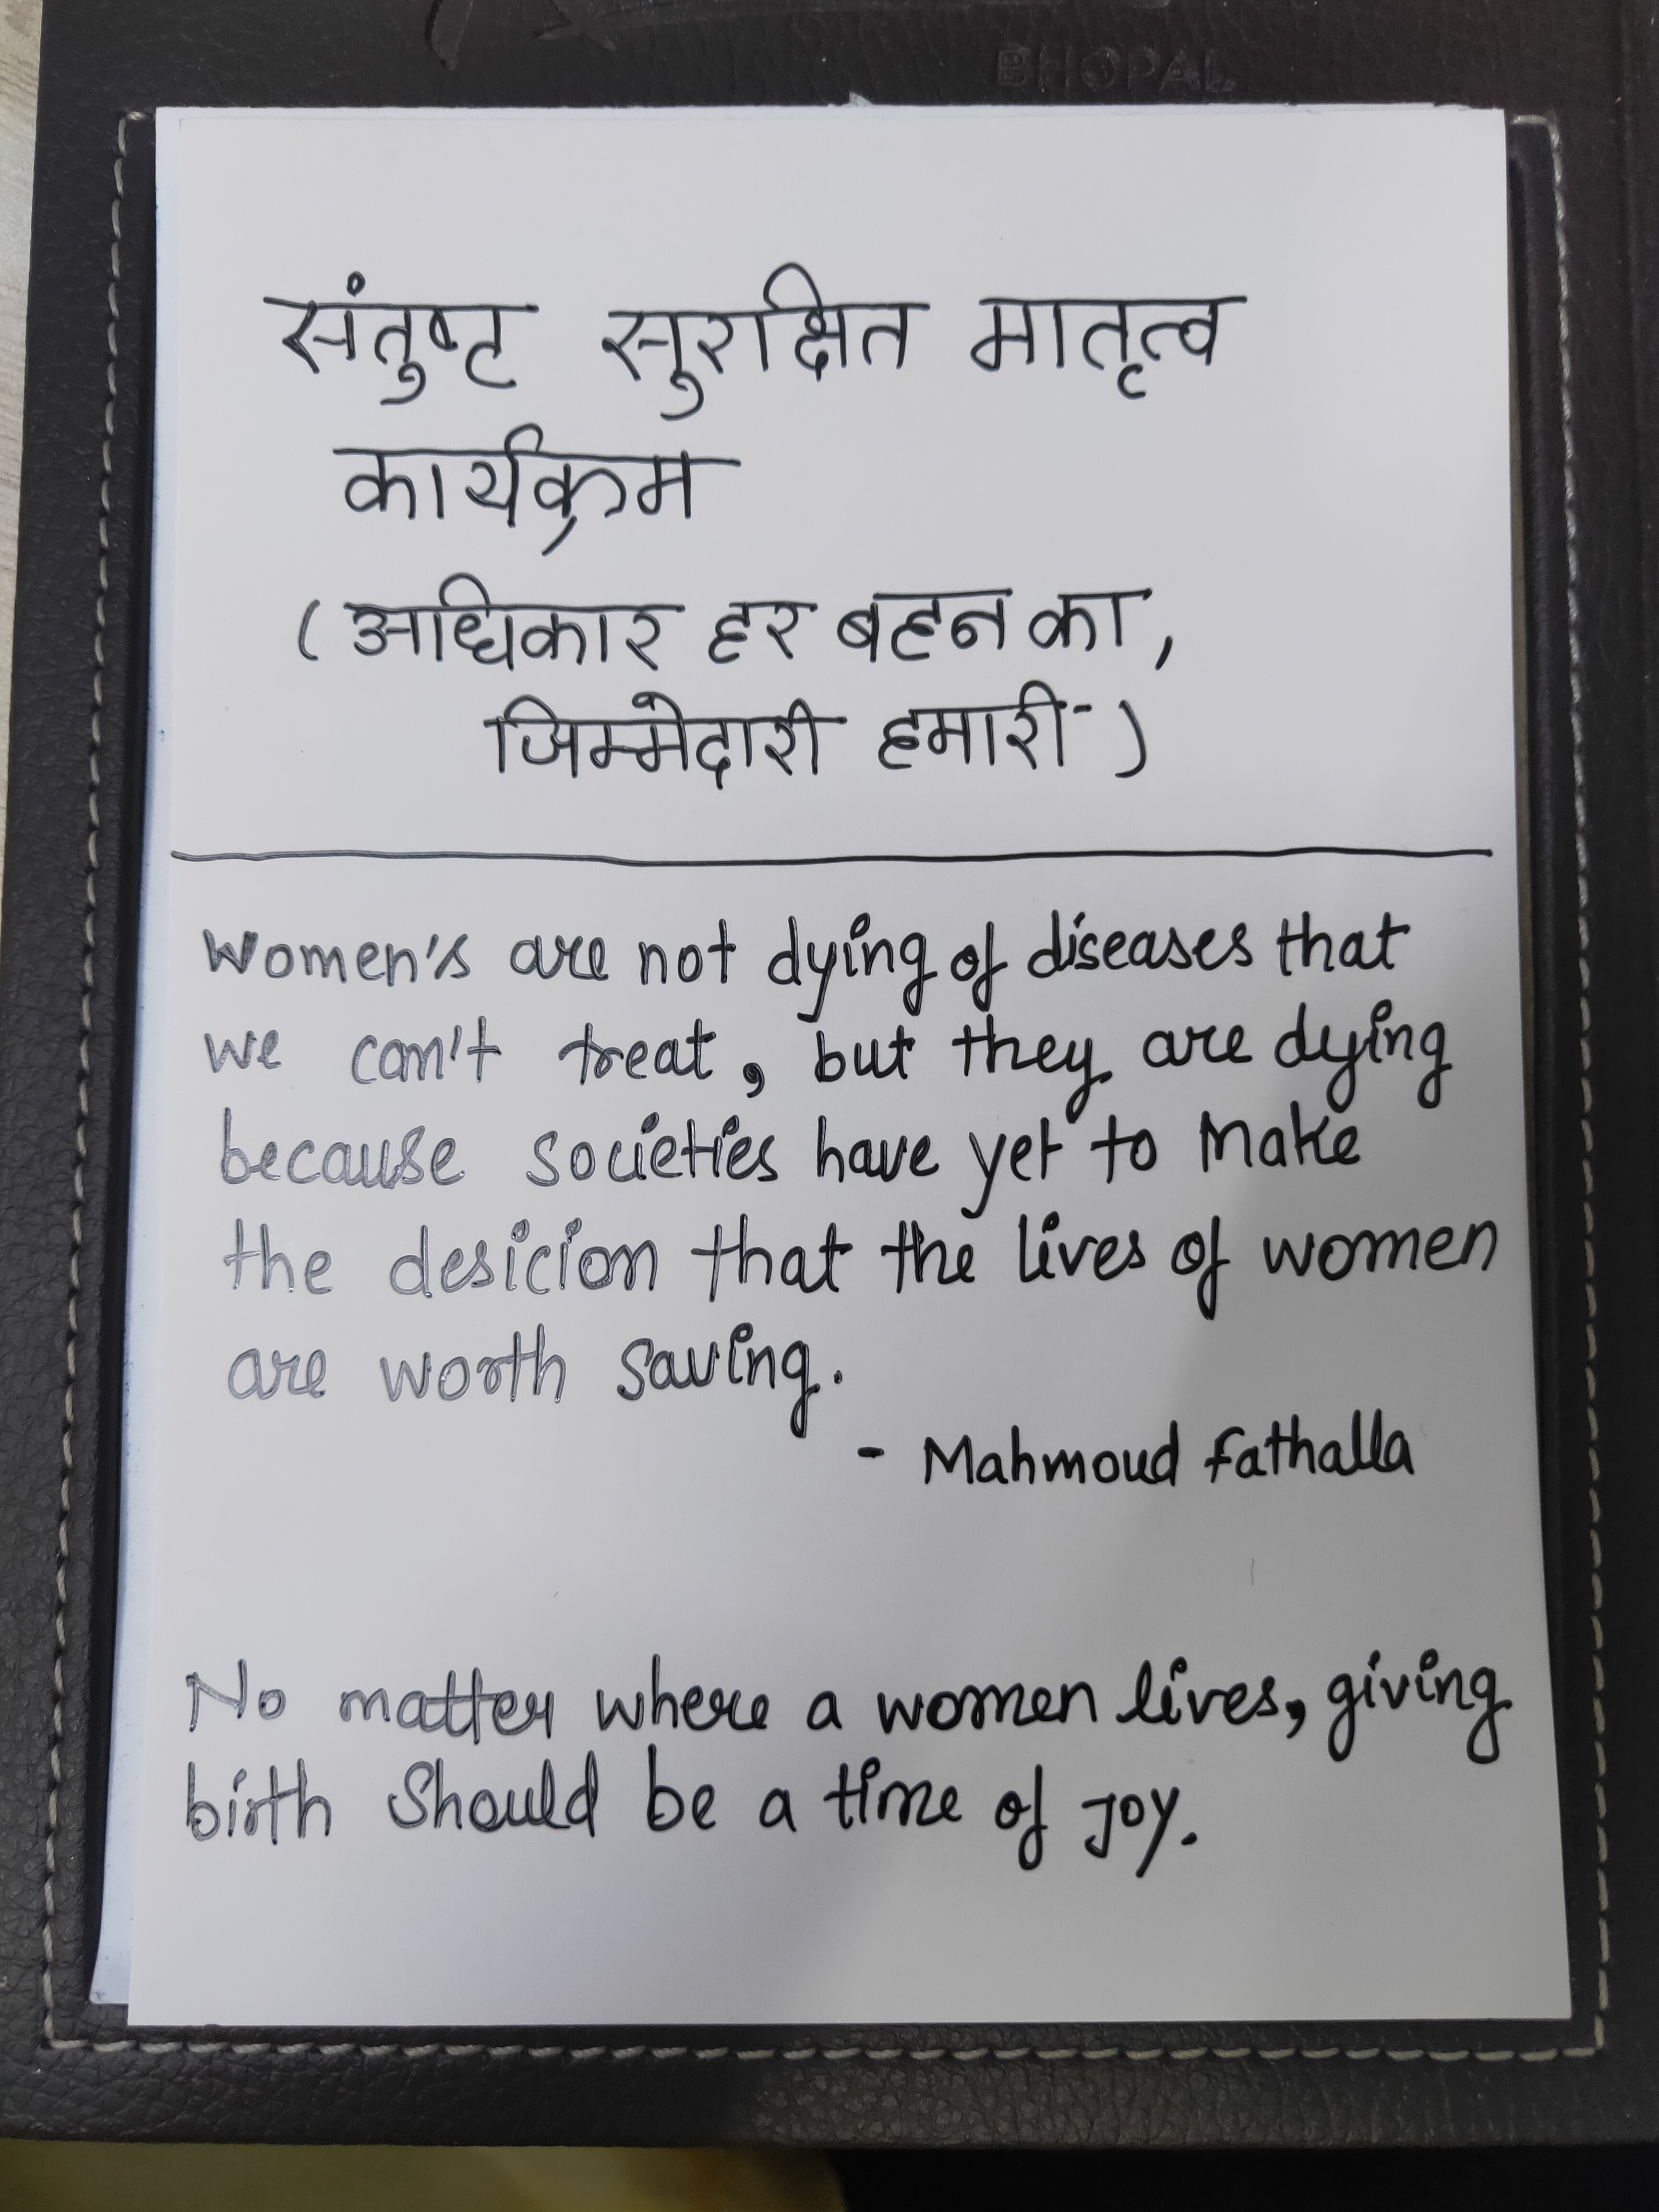 BHOPAL
संतुष्ट सुरक्षित मातृत्व
कार्यक्रम
(अधिकार हर बहन का,
जिम्मेदारी हमारी-)
Women's are not dying of diseases that
we can't treat, but they are dying
because societies have yet to make
the desicion that the lives of women
are worth saving.
- Mahmoud Fathalla
No matter where a women lives, giving
birth Should be a time of Joy.